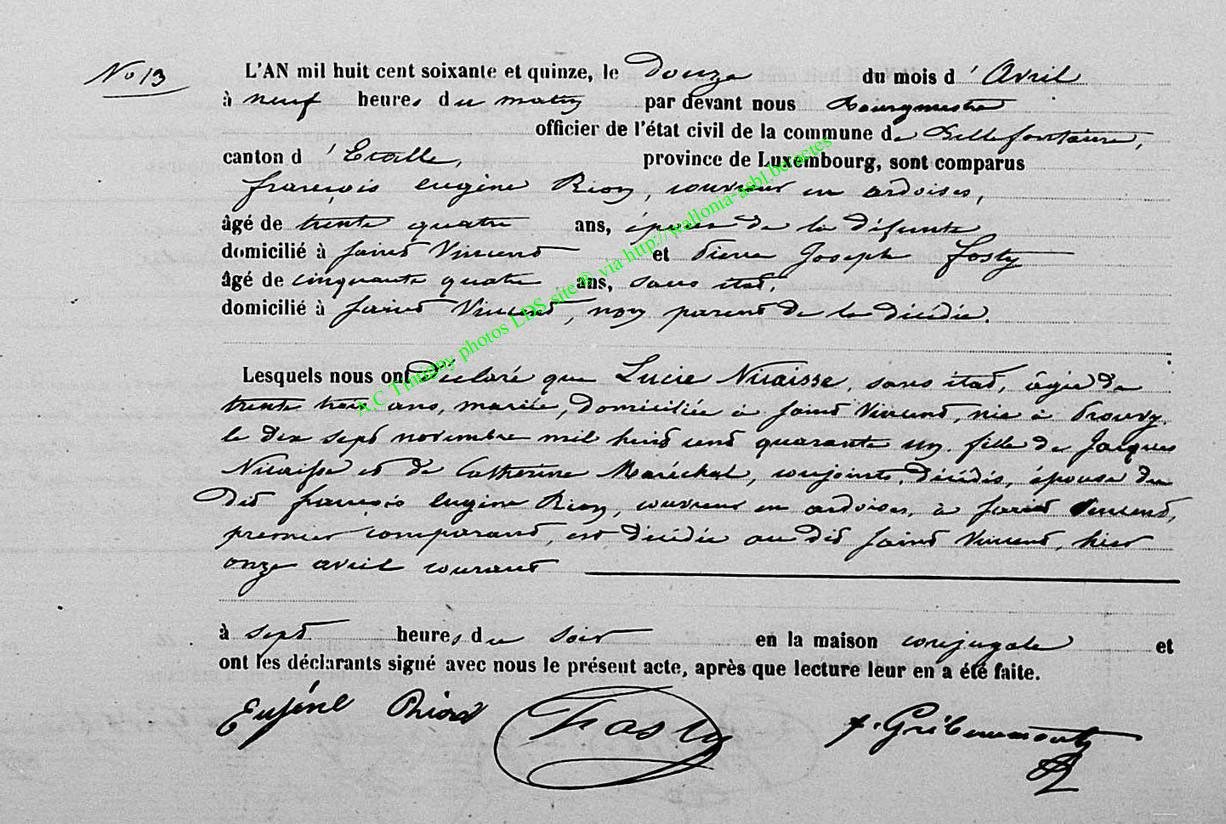 No 13
L'AN mil huit cent soixante et quinze, le Douze du mois d'Avril
à neuf heures du matin par devant nous Bourgmestre
officier de l'état civil de la commune de Bellefontaine,
canton d'Etalle, province de Luxembourg, sont comparus
françois Eugène Rion, couvreur en ardoises,
âgé de trente quatre ans, époux de la défunte
domicilié à Saint Vincent et Pierre Joseph Fosty
âgé de cinquante quatre ans, sans état,
domicilié à Saint Vincent, non parent de la décédée.
Lesquels nous ont Déclaré que Lucie Nicaisse, sans état, âgée de
trente trois ans, mariée, domiciliée à Saint Vincent, née à Prouvy
le dix sept novembre mil huit cent quarante un, fille de Jacques
Nicaisse et de Catherine Maréchal, conjoints, décédés, épouse du
dit françois Eugène Rion, couvreur en ardoises, à Saint Vincent,
premier comparant, est décédée au dit Saint Vincent, hier
onze avril courant
à sept heures du soir en la maison conjugale et
ont les déclarants signé avec nous le présent acte, après que lecture leur en a été faite.
Eugéne Rion Fosty f. Gribaumont
A.C Timothy photos LDS site® via http://wallonia-asbl.be/actes